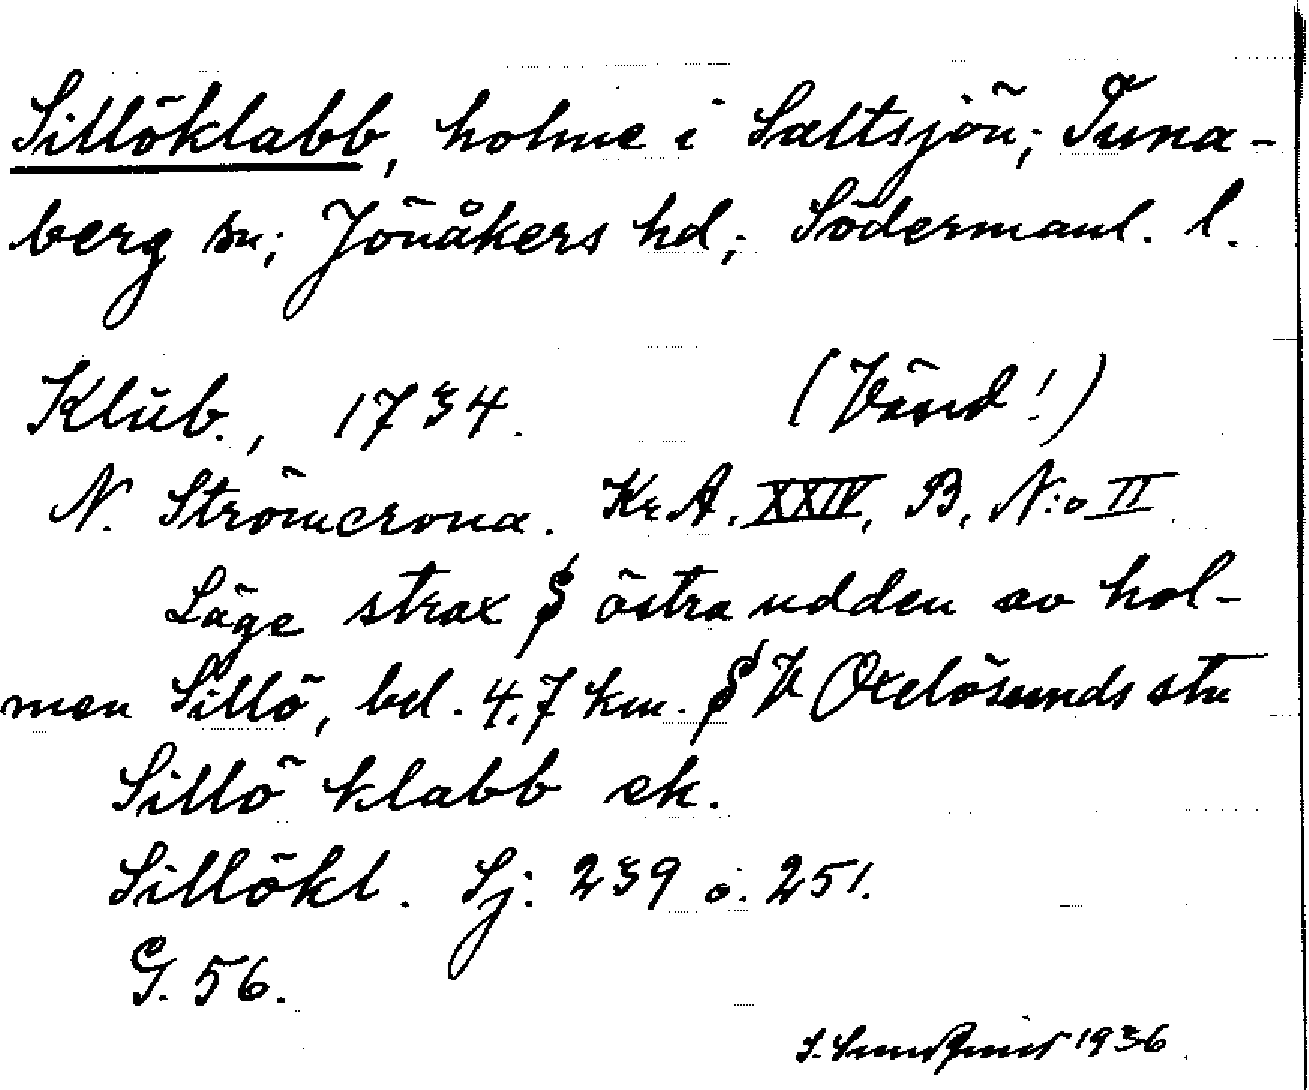 Sillöklabb, holme i Saltsjön; Tuna-
berg sn; Jönåkers hd; Södermanl. l.
Klüb., 1734. (Vänd!)
N. Strömcrona. Kr. A. XXIV, B, N:o II
Läge strax S östra udden av hol-
men Sillö, bel. 4,7 km. S V Oxelösunds stn
Sillö klabb ek.
Sillökl. Sj. 239 o. 251.
G. 56.
S. 1936